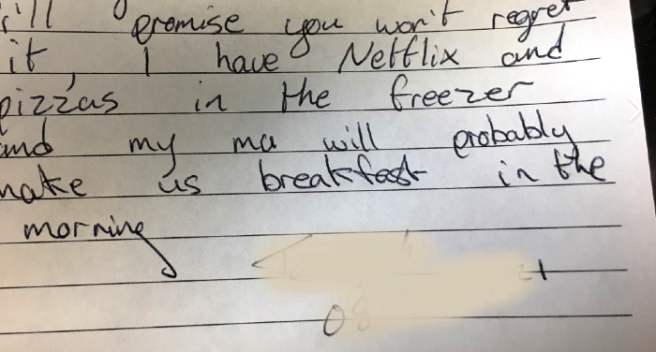 I'll promise you won't regret
it, I have Netflix and
pizzas in the freezer
and my ma will probably
make us breakfast in the
morning
08